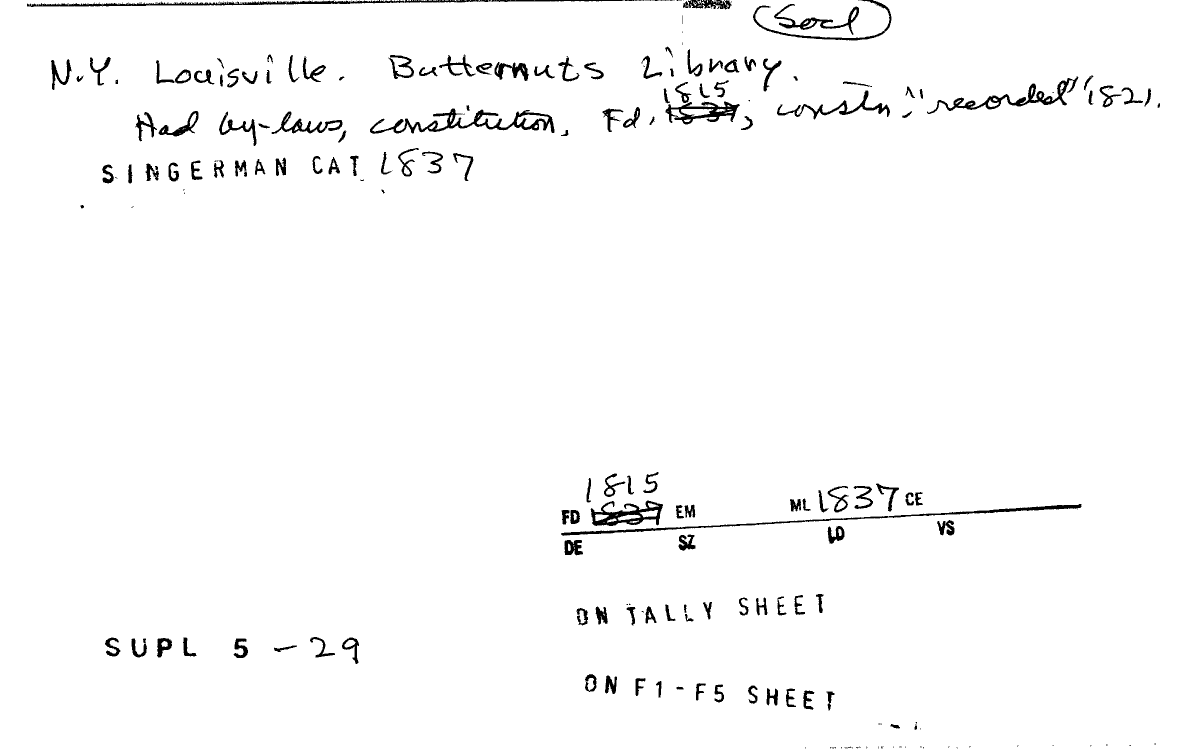 Socl
N.Y. Louisville. Butternuts Library.
1815
Had by-laws, constitution, Fd. 1837; constn, "recorded" 1821.
SINGERMAN CAT 1837
1815
FD 1837 EM ML 1837 CE
DE SZ LD VS
ON TALLY SHEET
SUPL 5 - 29
ON F1-F5 SHEET